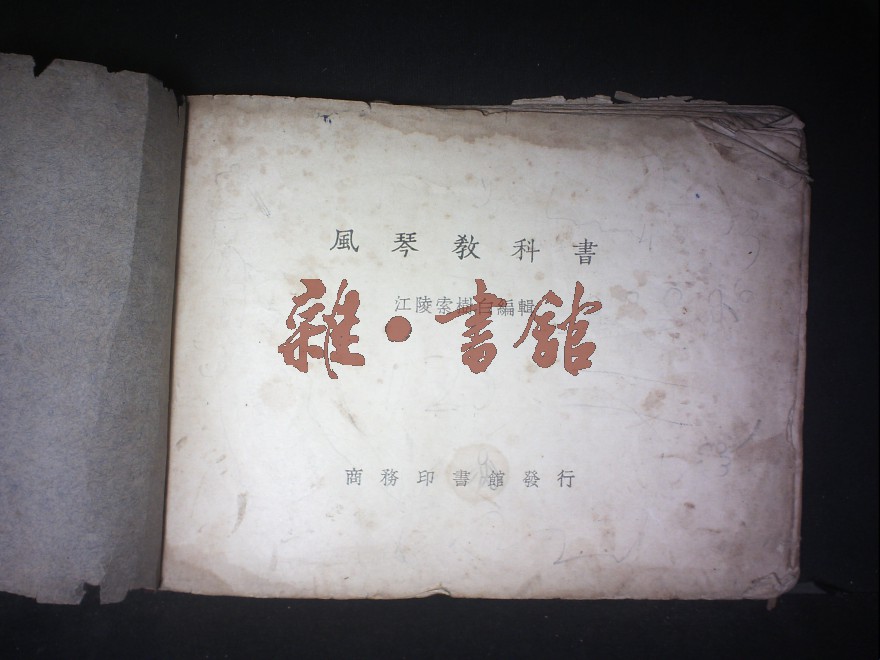 風琴教科書
江陵索樹白編輯
雜·書館
商務印書館發行